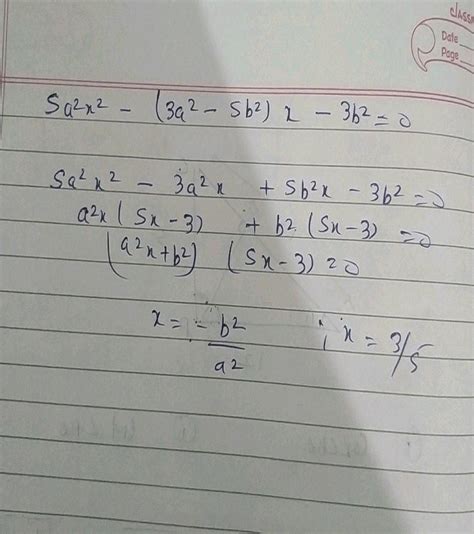 classm
Date
Page
5a²x² - (3a² - 5b²) x - 3b² = 0
5a²x² - 3a²x + 5b²x - 3b² = 0
a²x (5x - 3) + b² (5x - 3) = 0
(a²x + b²) (5x - 3) = 0
x = - b²/a² ; x = 3/5